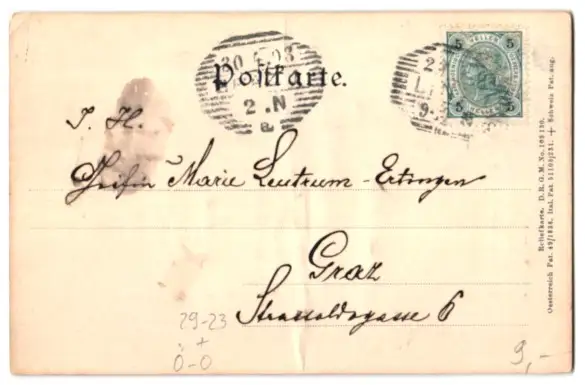 Postkarte.
30 4 03
2.N
a
5 HELLER 5
5 5
9-
I. H.
Gräfin Marie Leutrum-Ertingen
Graz
Strassoldogasse 6
29-23
+
0-0
9,-
Reliefkarte. D.R.G.M. No.
Oesterreich Pat. Ital. Pat. + Schweiz Pat. ang.